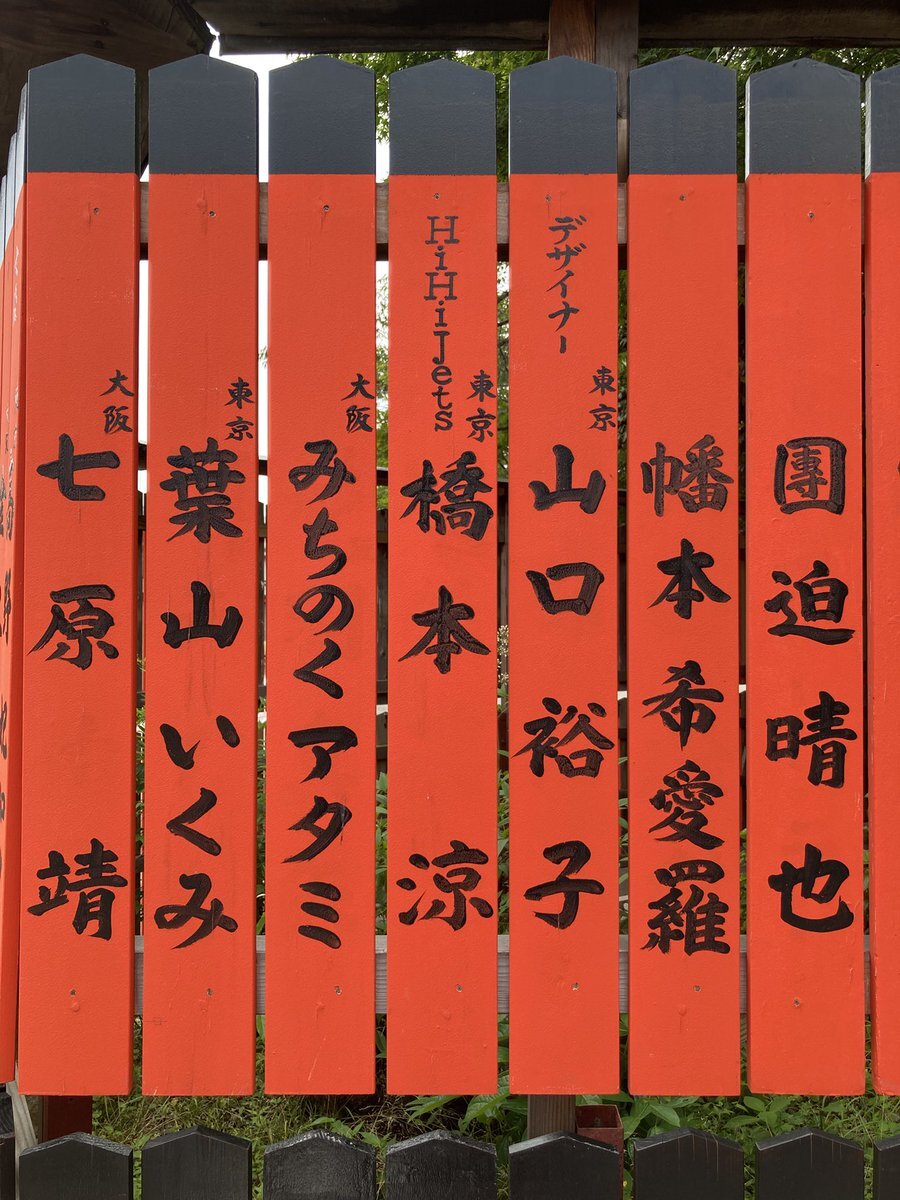 團迫晴也
幡本希愛羅
デザイナー
東京
山口裕子
HiHiJets
東京
橋本涼
大阪
みちのくアタミ
東京
葉山いくみ
大阪
七原靖